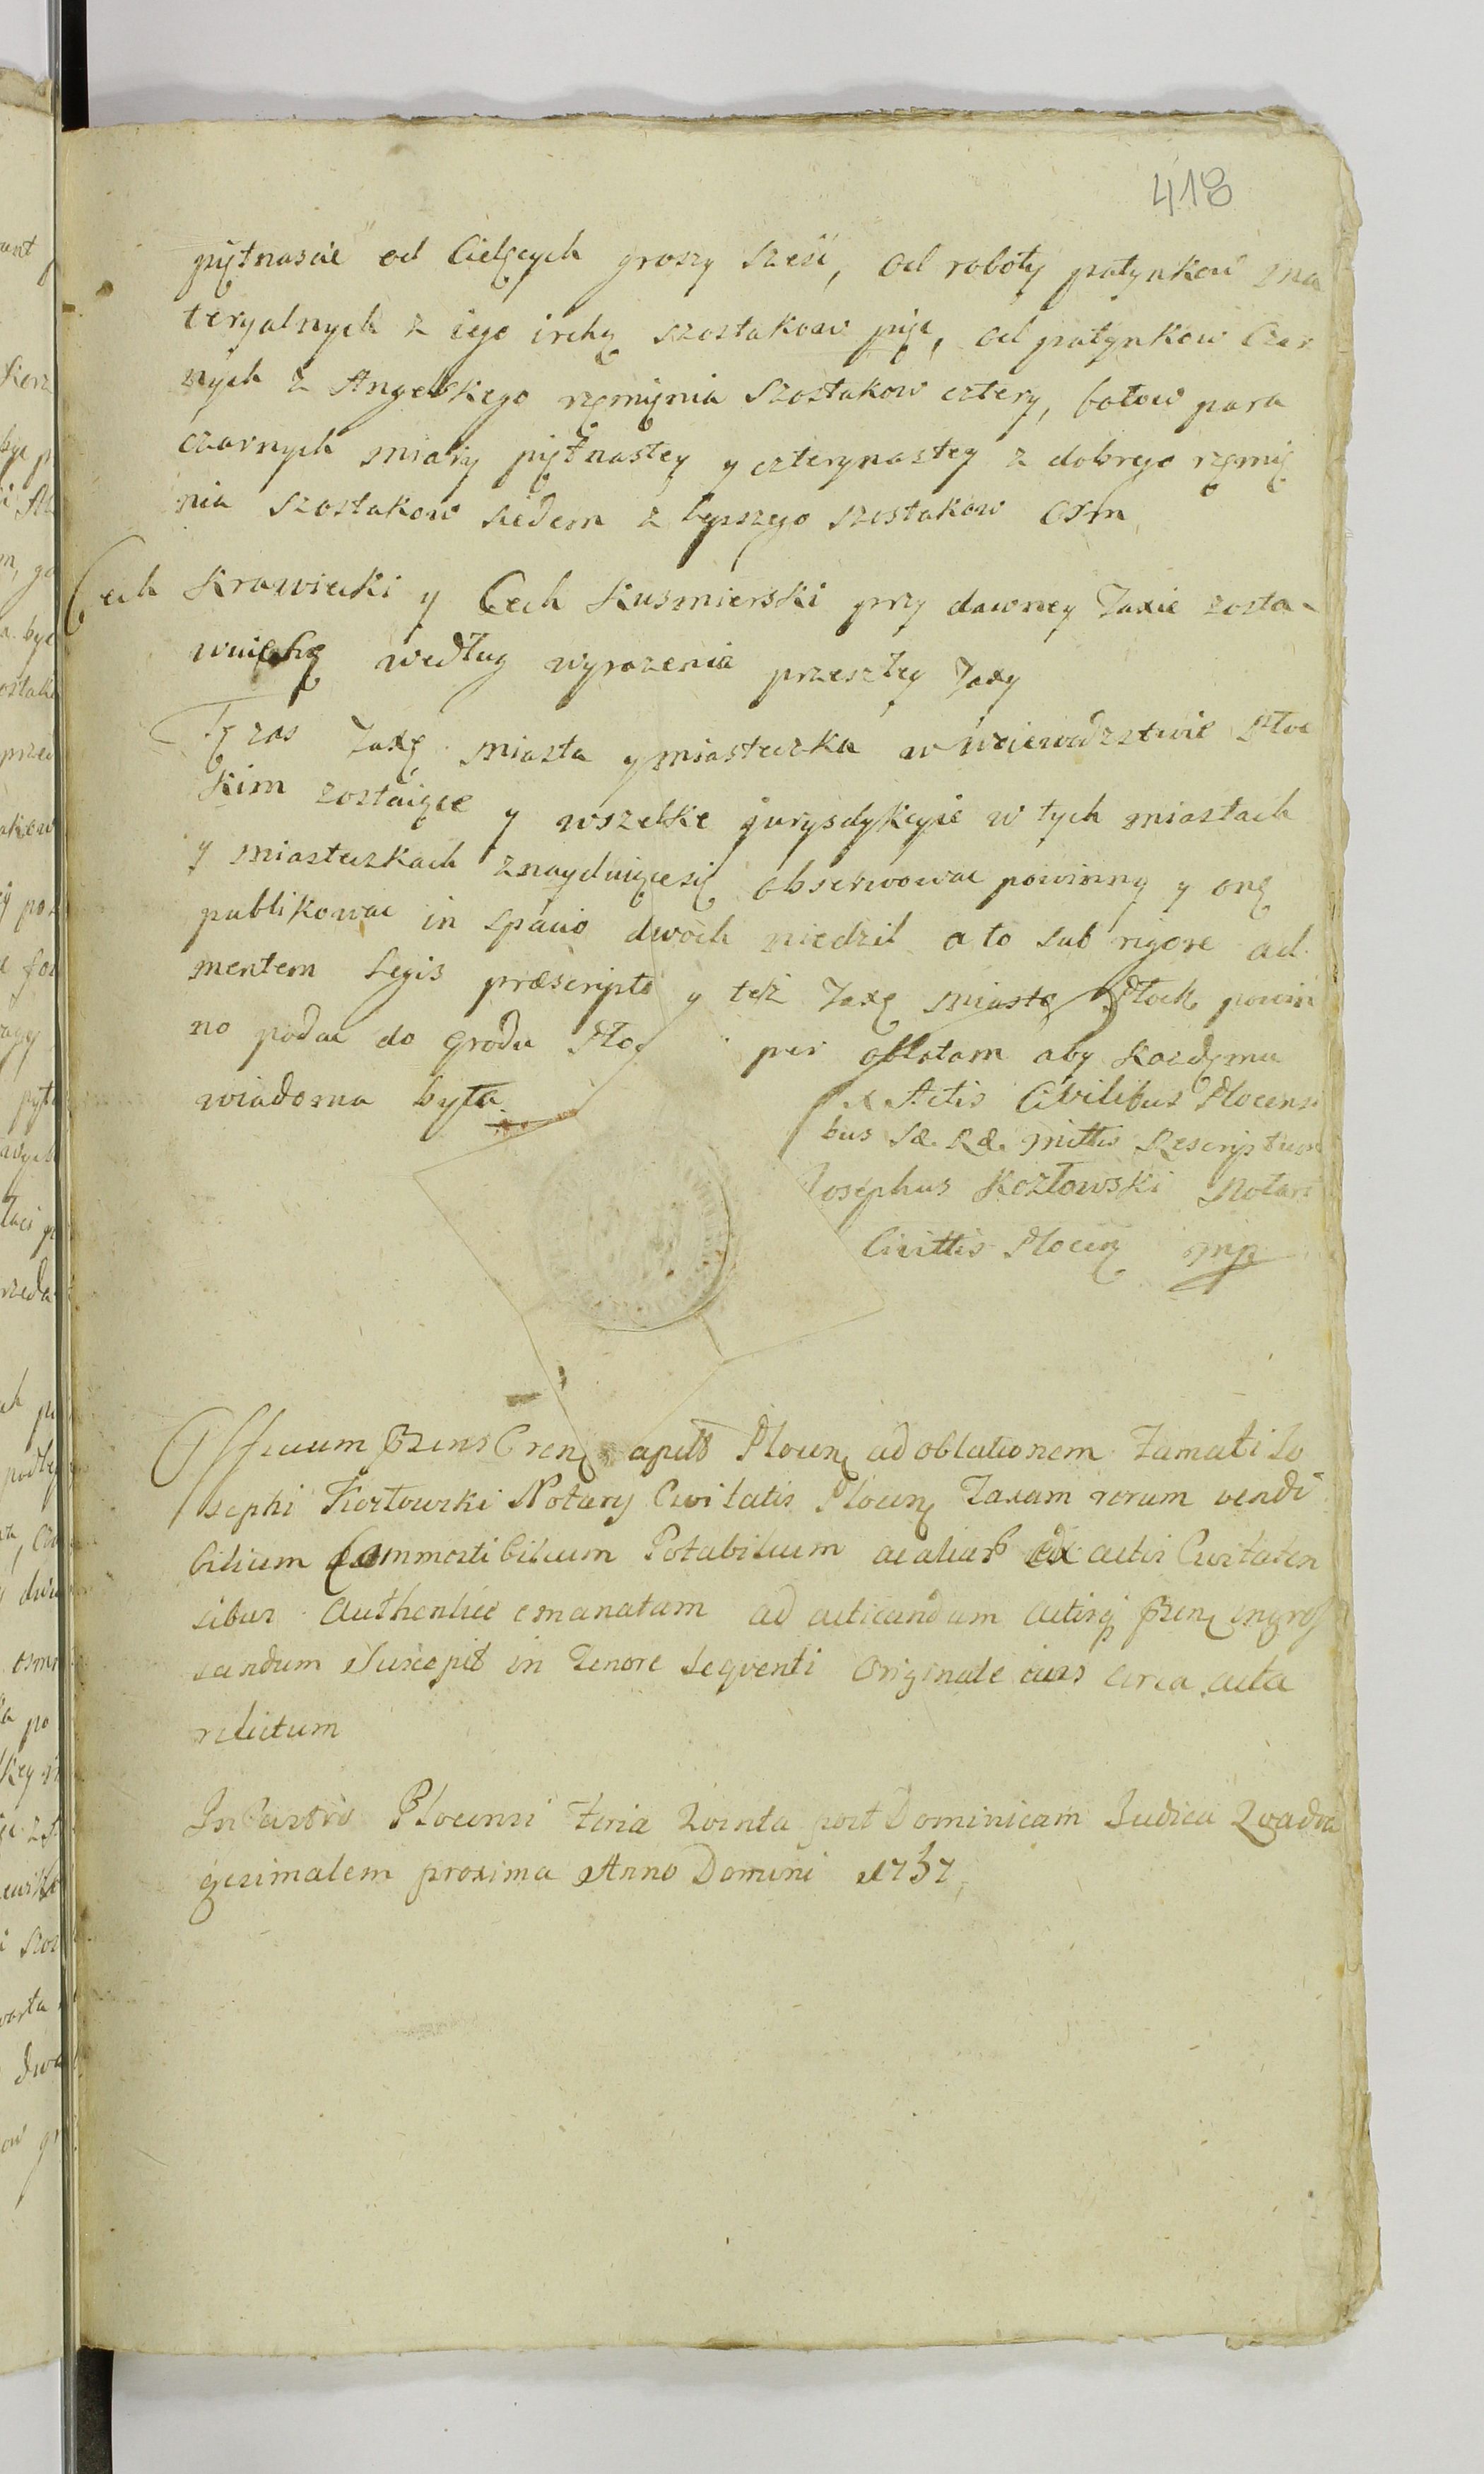 418
piętnascie od Cielęcych groszy szesc, od roboty patynkow ma
teryalnych z iego irchy szostakow pięc, od patynkow Czar
nych z Angelskiego rzęmięnia szostakow cztery, botow para
czarnych miary piętnastey y czterynastey z dobrego rzęmię
nia szostakow siedem z lepszego szostakow osm
Cech Krawiecki y Cech Kusmierski przy dawney Taxie zosta-
według wyrazenia przeszłey Taxy
Tę zas Taxę miasta y miasteczka w woiewodztwie Płoc
kim zostaiące y wszelkie jurysdykcyie w tych miastach
y miasteczkach znayduiącesię obserwowac powinny y onę
publikowac in spacio dwoch niedziel a to sub rigore ad
mentem Legis præscripto y też Taxę miasto Płock powin
no podac do grodu Płoc per oblatam aby kozdęmu
wiadoma była
Ex Actis Civilibus Plocensi
bus Sæ. Ræ. Mittis Rescriptum
Iosephus Kozłowski Notari
Civittis Plocen mp
Officium prens Cren capit Plocen ad oblationem Famati Io
sephi Kozłowski Notary Civitatis Plocen Taxam rerum vendi
bilium Commestibilium Potabilium ac aliar ex actis Civitaten
sibus Authentice emanatam ad acticandum actisq pren ingros
sandum Suscepit in Tenore Sequenti Originale eius circa acta
relictum
In Castro Plocensi Feria Quinta post Dominicam Iudica Quadra
gesimalem proxima Anno Domini 1737